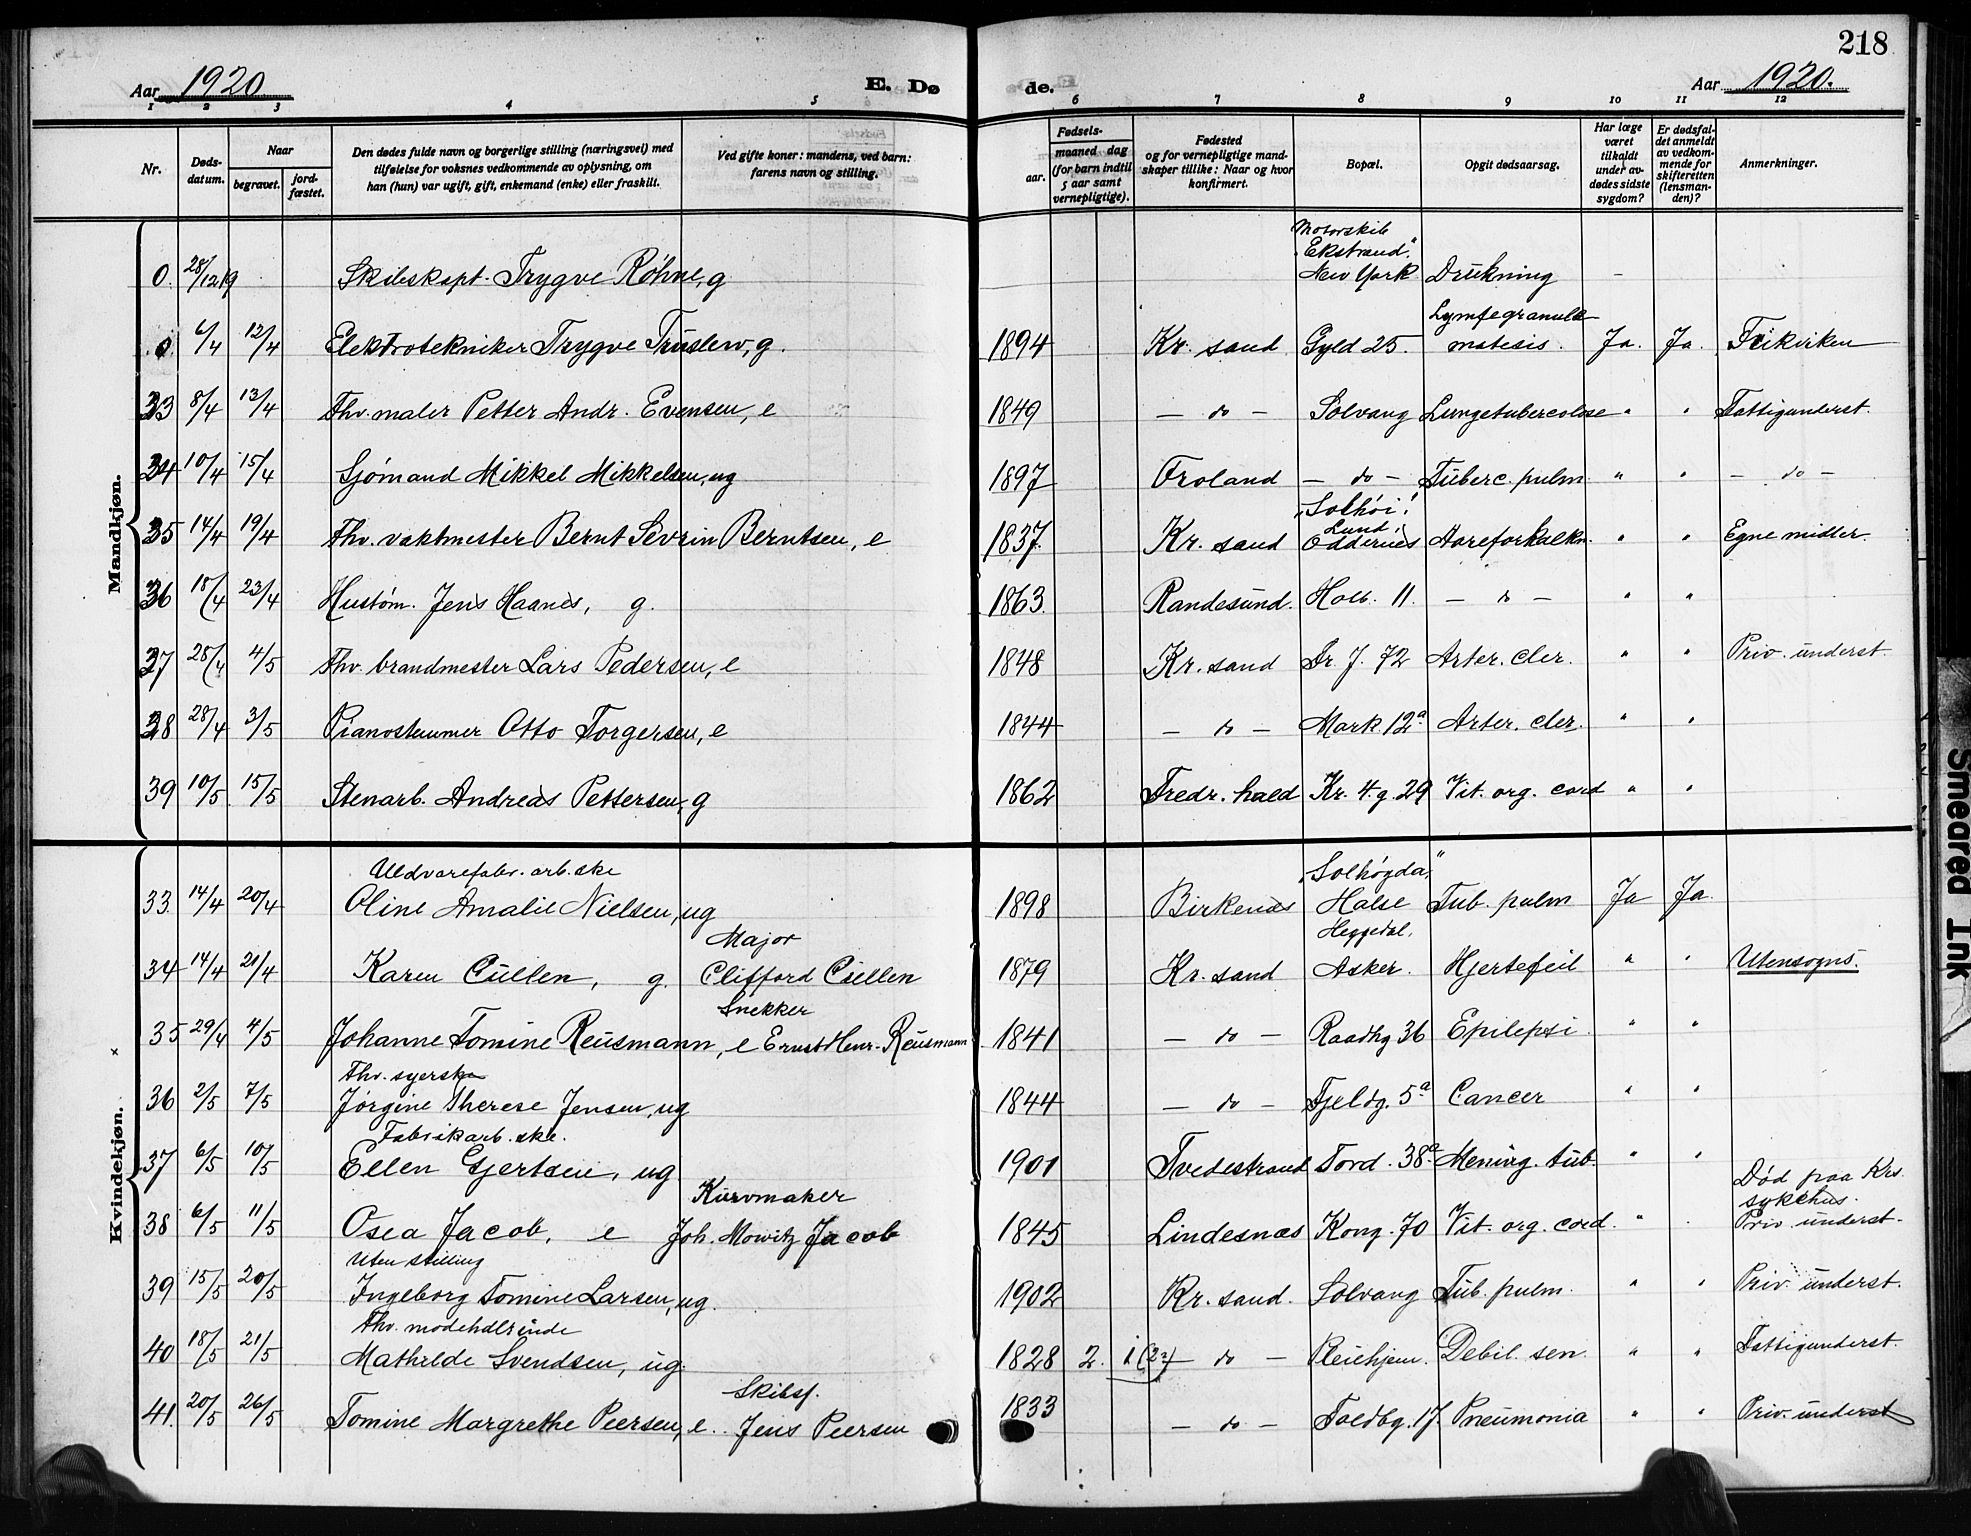 218
Aar 1920
E. Dø
de.
Aar 1920.
1 2 3 4 5 6 7 8 9 10 11 12
Nr.
Døds-
datum.
Naar
begravet.
jord-
fæstet.
Den dødes fulde navn og borgerlige stilling (næringsvei) med
tilføielse for voksnes vedkommende av oplysning, om
han (hun) var ugift, gift, enkemand (enke) eller fraskilt.
Ved gifte koner: mandens, ved barn:
farens navn og stilling.
Fødsels-
aar.
maaned dag
(for barn indtil
5 aar samt
vernepligtige).
Fødested
og for vernepligtige mand-
skaper tillike: Naar og hvor
konfirmert.
Bopæl.
Opgit dødsaarsag.
Har læge
været
tilkaldt
under av-
dødes sidste
sygdom?
Er dødsfal-
det anmeldt
av vedkom-
mende for
skifteretten
(lensman-
den)?
Anmerkninger.
Mandkjøn.
Motorskib
"Ekstrand"
0. 28/12 19 Skibskapt. Trygve Röhne, g New York Drukning -
Lymfegranulo-
0 6/4 12/4 Elektrotekniker Trygve Truslew, g. 1894 Kr. sand Gyld 25. matosis. Ja. Ja. Frikirken
33 8/4 13/4 Fhv. maler Petter Andr. Evensen, e 1849 - do - Solvang Lungetuberculose " " Fattigunderst.
34 10/4 15/4 Sjømand Mikkel Mikkelsen, ug 1897 Froland - do - Tuberc. pulm " " - do -
"Solhöi"
Lund,
35 14/4 19/4 Fhv. vaktmester Bernt Sevrin Berntsen, e 1837. Kr. sand Oddernes Aareforkalkn. " " Egne midler.
36 18/4 23/4 Hustøm. Jens Haanes, g. 1863. Randesund. Holb. 11. - do - " "
37 28/4 4/5 Fhv. brandmester Lars Pedersen, e 1848 Kr. sand Dr. J. 72 Arter. cler. " " Priv. underst.
38 28/4 3/5 Pianostemmer Otto Torgersen, e 1844 - do - Mark. 12a Arter. cler. " "
39 10/5 15/5 Stenarb. Andreas Pettersen, g 1862 Fredr. hald Kr. 4. g. 29 Vit. org. cord " "
Kvindekjøn.
Uldvarefabr. arb.ske "Solhøgda,"
33. 14/4 20/4 Oline Amalie Nielsen, ug 1898 Birkenes Halse Tub. pulm Ja Ja.
Major Heggedal,
34 14/4 21/4 Karen Cullen, g. Clifford Cullen 1879 Kr. sand Asker. Hjertefeil " " Utensogns.
Snekker
35 29/4 4/5 Johanne Tomine Reusmann, e Ernst Henr. Reusmann 1841 - do - Raadhg 36 Epilepsi " "
Fhv. syerske
36 2/5 7/5 Jørgine Therese Jensen, ug 1844 - do - Fjeldg. 5a Cancer " "
Fabrikarb. ske.
37 6/5 10/5 Ellen Gjertsen, ug 1901 Tvedestrand Tord. 38a Mening. tub. " "
Kurvmaker Død paa Krs.
sykehus.
38 6/5 11/5 Osea Jacob, e Joh. Mowitz Jacob 1845 Lindesnæs Kong. 70 Vit. org. cord. " " Priv. underst.
Uten stilling
39 15/5 20/5 Ingeborg Tomine Larsen, ug. 1902 Kr. sand. Solvang Tub. pulm. " " Priv. underst.
Fhv. modehdlrinde
40 18/5 21/5 Mathilde Svendsen, ug. 1828 2. - do - Pleiehjem. Debil. sen. " " Fattigunderst.
Skibsf.
41. 20/5 26/5 Tomine Margrethe Peersen, e. Jens Peersen 1833 - do - Toldbg. 17. Pneumonia " " Priv. underst
Smeared Ink